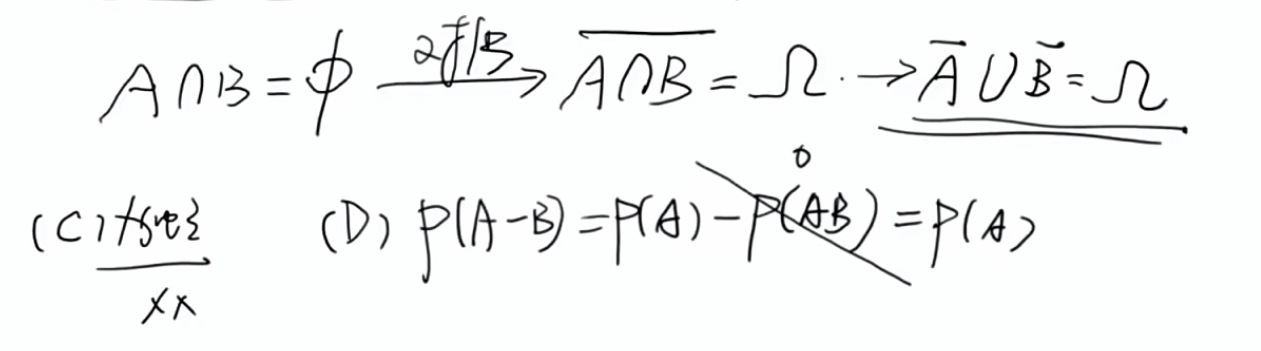 A∩B=ϕ → \overline{A∩B}=Ω.→\overline{A}∪\overline{B}=Ω
(C) (D) P(A-B)=P(A)-P(AB)=P(A)
0
××